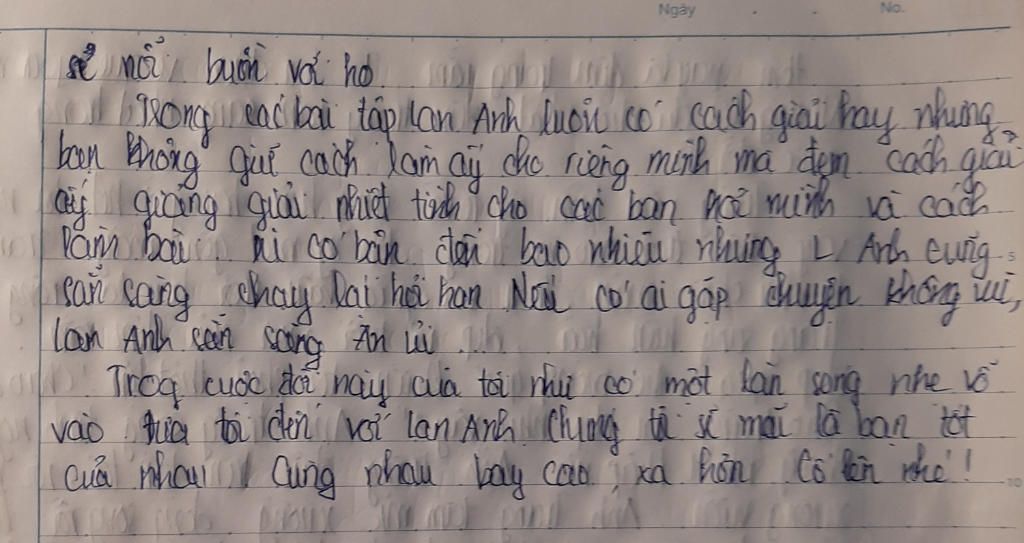 Ngày No.
sẻ nỗi buồn với họ.
Trong các bài tập Lan Anh luôn có cách giải hay nhưng
bạn không giữ cách làm ấy cho riêng mình mà đem cách giải
ấy giảng giải nhiệt tình cho các bạn hỏi mình về cách
làm bài. Dù có bận đến bao nhiêu nhưng L Anh cũng
sẵn sàng chạy lại hỏi han Nếu có ai gặp chuyện không vui,
Lan Anh sẵn sàng An ủi ...
Trog cuộc đời này của tôi như có một làn sóng nhẹ vỗ
vào đưa tôi đến với Lan Anh. Chúng tôi sẽ mãi là bạn tốt
của nhau! Cùng nhau bay cao, xa hơn Cố lên nhé!
5
10